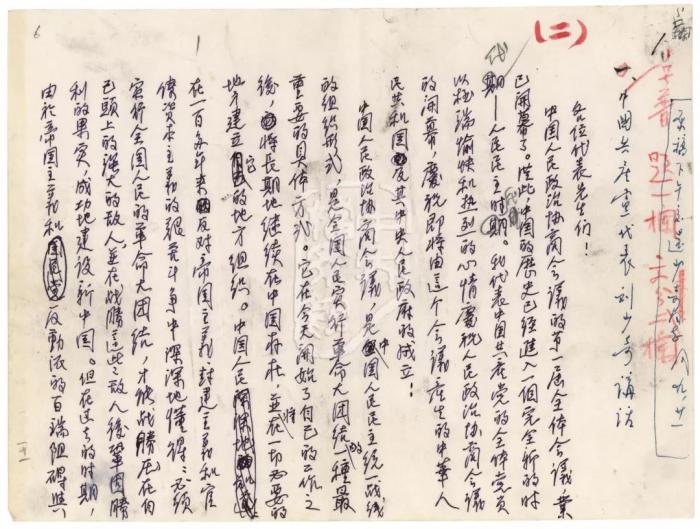 (二)
一、中國共產党代表刘少奇講話
各位代表先生们!
中国人民政治协商会議的第一屆全体会議業
已開幕了。從此,中国的歷史已经進入一個完全新的时
代——人民民主时代。我代表中国共產党的全体党员
以極端愉快和热烈的心情慶祝人民政治协商会議
的開幕,慶祝即将由这个会議產生的中華人
民共和国及其中央人民政府的成立!
中国人民政治协商会議是中国人民民主统一战线
的组织形式,是全国人民实行革命大团结的一種最
重要的具体方式。它在今天開始了自己的工作之
後,将長期地继续在中国存在,並将在一切必要的
地方建立它的地方组织。中国人民
在一百多年来反对帝国主义封建主义和官
僚资本主义的艰苦斗争中深深地懂得:必须
实行全国人民的革命大团结,才能战勝压在自
己頭上的强大的敌人並在战勝这些敌人後鞏固勝
利的果实,成功地建设新中国。但在过去的时期,
由於帝国主义和国民党反動派的百端阻碍与
1
6